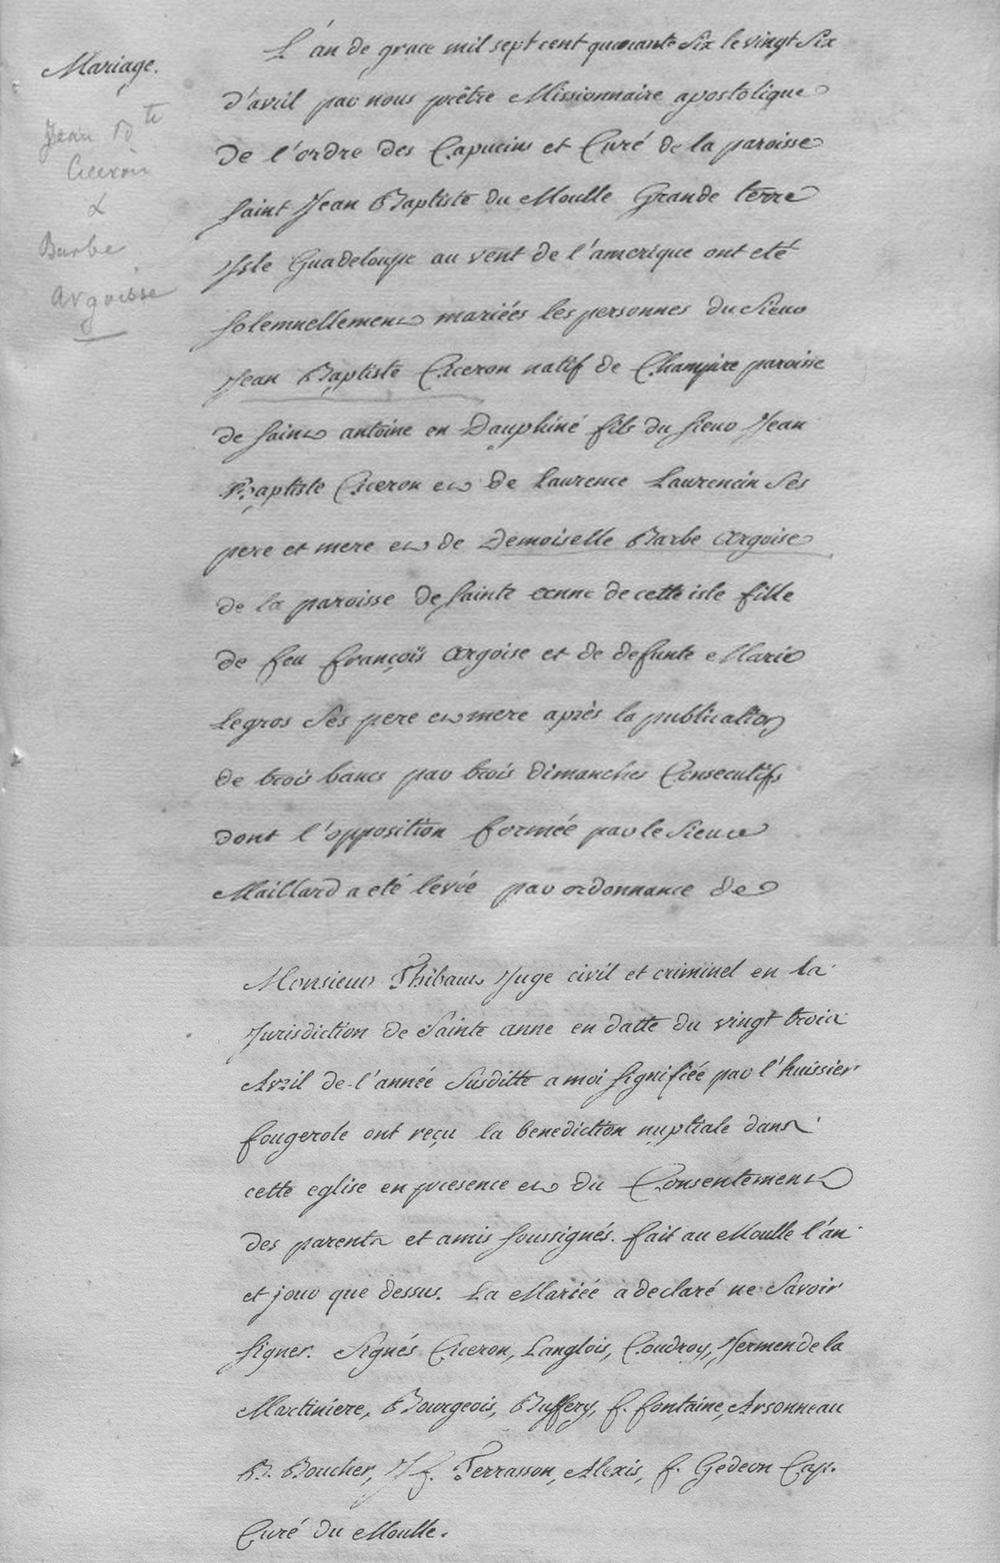 Mariage.
Jean Bte
Ciceron
&
Barbe
Argoisse
L'an de grace mil sept cent quarante Six le vingt Six
d'avril par nous prêtre Missionnaire apostolique
de l'ordre des Capucins et Curé de la paroisse
Saint Jean Baptiste du Moulle Grande terre
Isle Guadeloupe au vent de l'amerique ont eté
Solemnellement mariées les personnes du Sieur
Jean Baptiste Ciceron natif de Champire paroisse
de Saint antoine en Dauphiné fils du Sieur Jean
Baptiste Ciceron et de Laurence Laurencin Ses
pere et mere et de Demoiselle Barbe Argoise
de la paroisse de Sainte anne de cette isle fille
de feu françois Argoise et de defunte Marie
Legros Ses pere et mere après la publication
de trois bancs par trois dimanches Consecutifs
dont l'opposition formée par le Sieur
Maillard a eté levée par ordonnance de
Monsieur Thibaut Juge civil et criminel en la
Jurisdiction de Sainte anne en datte du vingt trois
Avril de l'année Susditte a moi Signifiée par l'huissier
fougerole ont reçu la benediction nuptiale dans
cette eglise en presence et du Consentement
des parents et amis Soussignés. fait au Moulle l'an
et jour que dessus. La Mariée a declaré ne Savoir
Signer. Signés Ciceron, Langlois, Coudroy, Hermen de la
Martiniere, Bourgeois, Buffery, f. fontaine, Arsonneau
B. Boucher, J f. Terrasson, Alexis, f. Gedeon Cap.
Curé du Moulle.